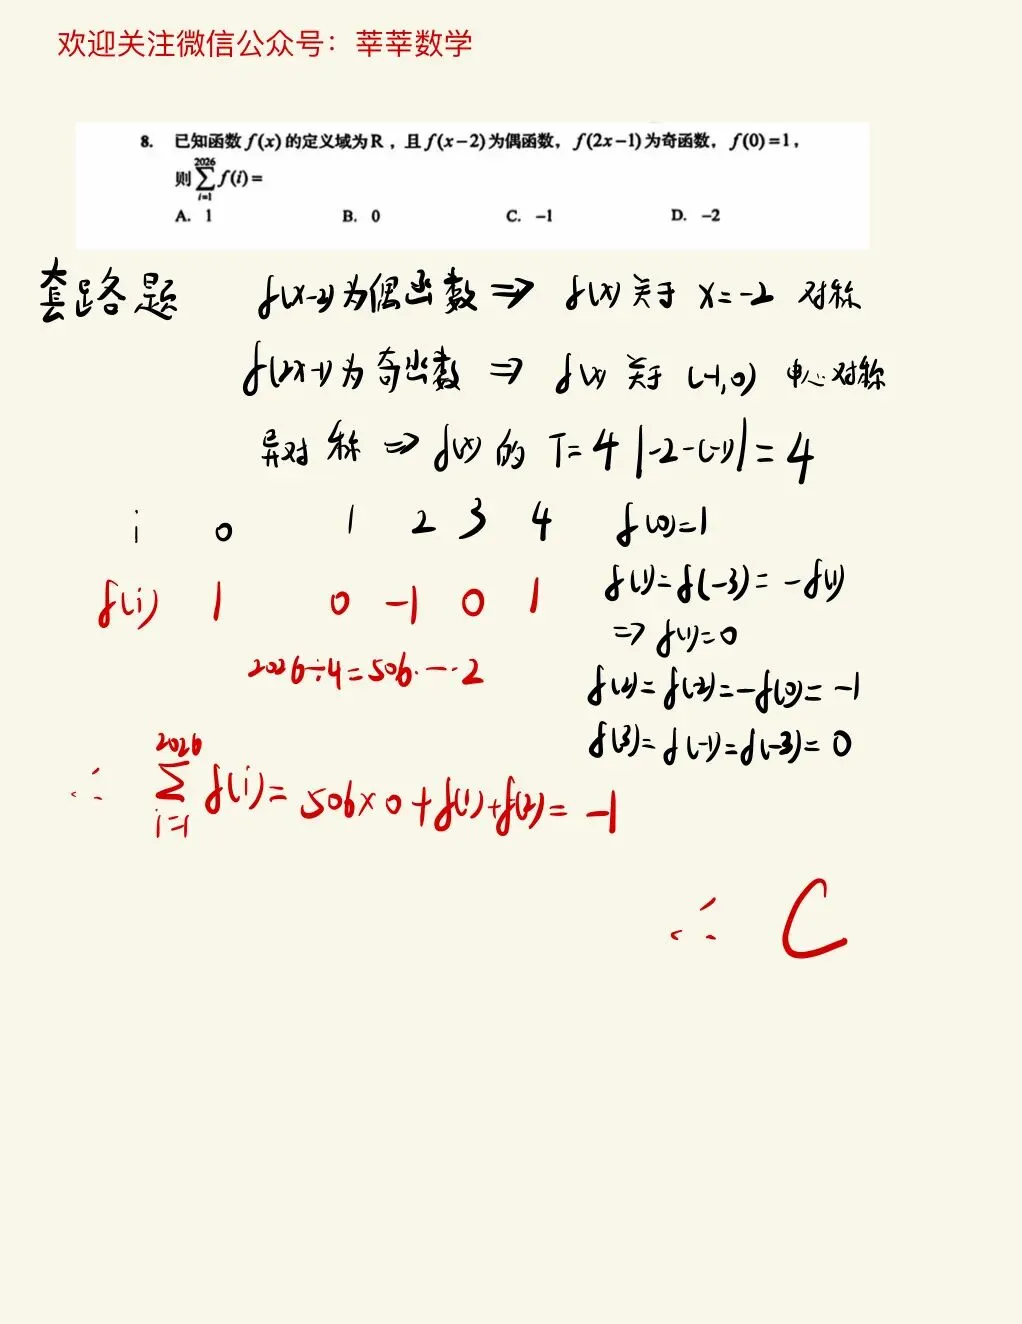 欢迎关注微信公众号：莘莘数学
8. 已知函数 f(x) 的定义域为 R，且 f(x−2) 为偶函数，f(2x−1) 为奇函数，f(0)=1，
则 \sum_{i=1}^{2026} f(i)=
A. 1 B. 0 C. −1 D. −2
套路题 f(x-2)为偶函数 ⇒ f(x)关于 x=-2 对称
f(2x-1)为奇函数 ⇒ f(x)关于 (-1,0) 中心对称
异对称 ⇒ f(x)的 T=4|-2-(-1)|=4
i 0 1 2 3 4
f(i) 1 0 -1 0 1
f(0)=1
f(1)=f(-3)=-f(1)
⇒ f(1)=0
f(2)=f(-2)=-f(0)=-1
f(3)=f(-1)=f(-3)=0
2026÷4=506……2
∴ \sum_{i=1}^{2026} f(i)=506×0+f(1)+f(2)=-1
∴ C